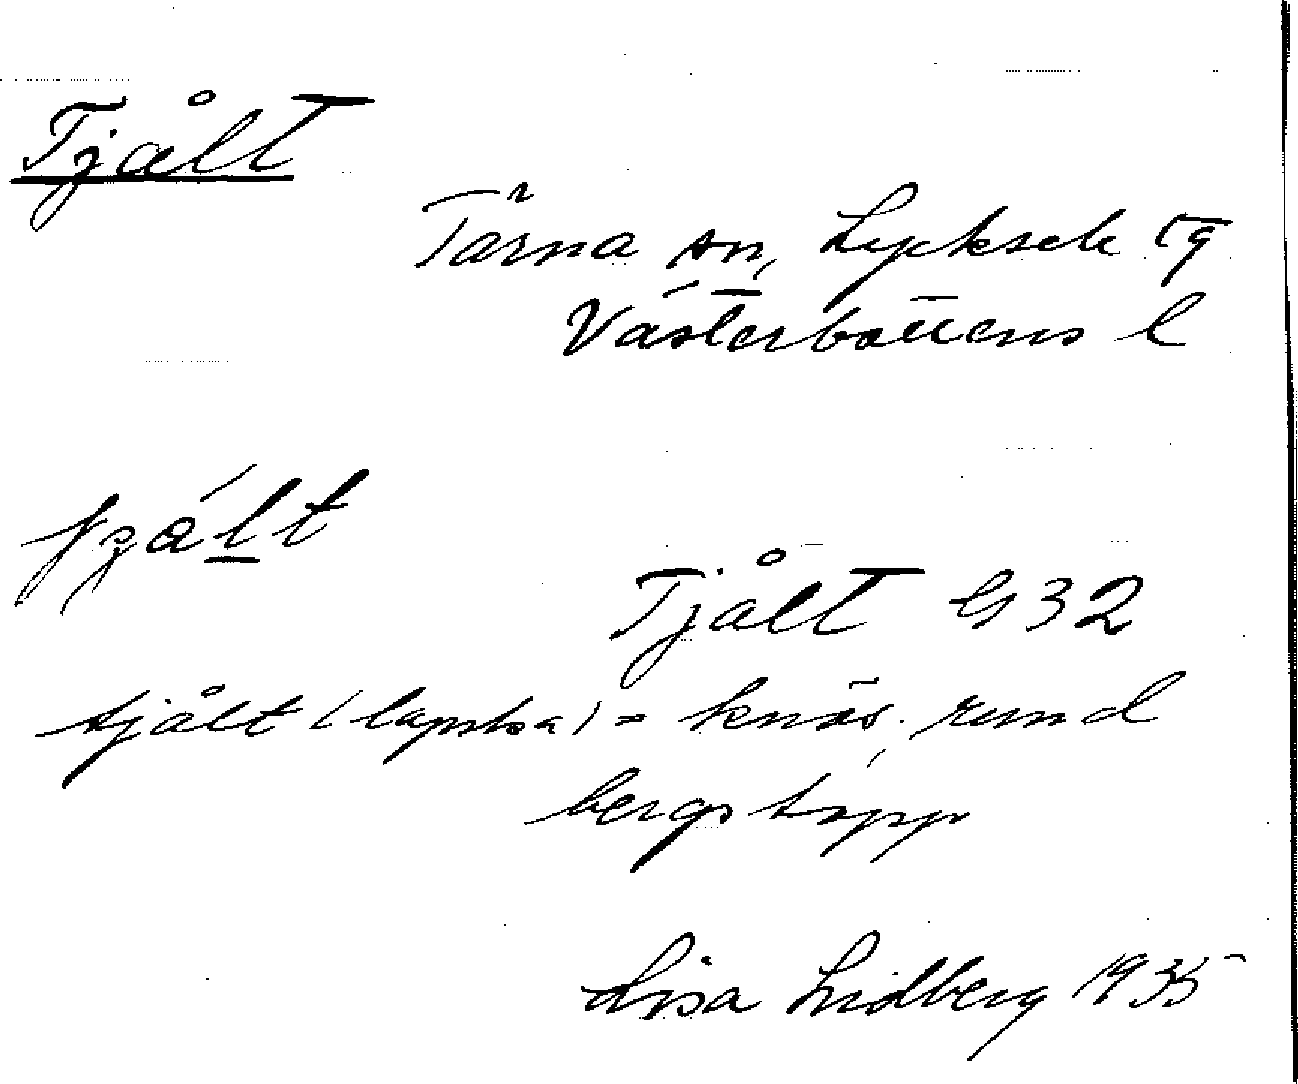 Tjålt
Tärna sn, Lycksele tg
Västerbottens l
Tjålt G32
tjålt (lapska) = knös, rund
bergstopp
Lisa Lidberg 1935